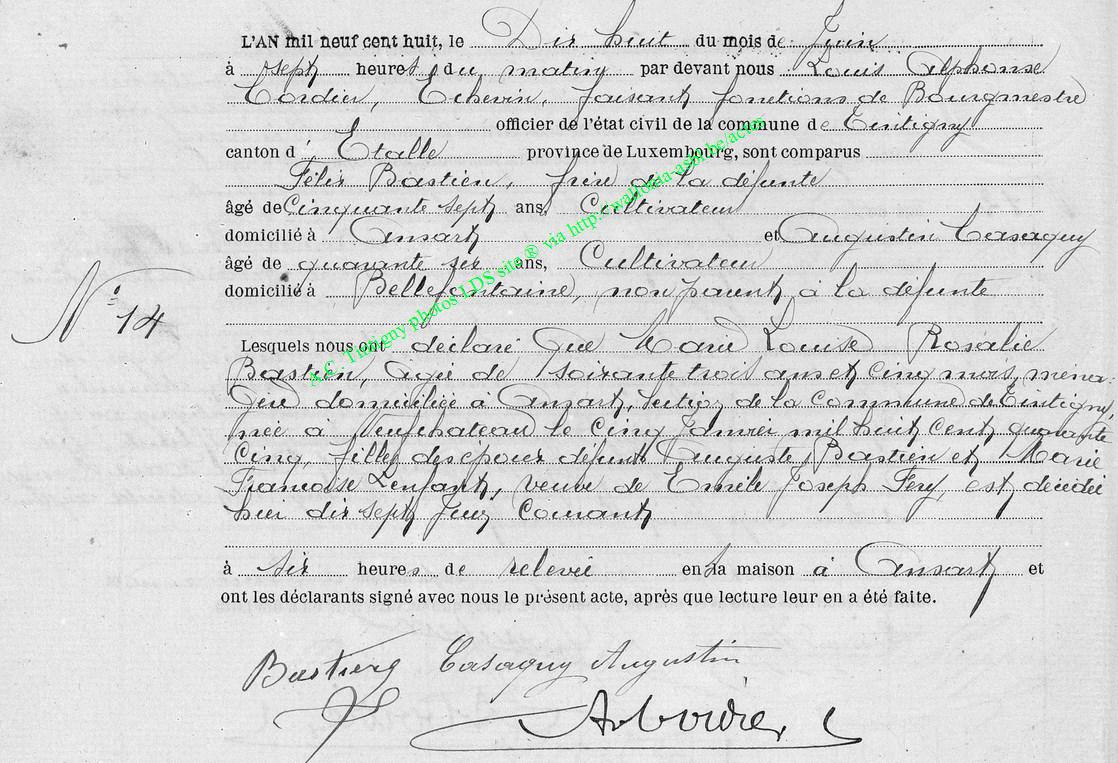 L'AN mil neuf cent huit, le Dix huit du mois de Juin
à sept heures du matin par devant nous Louis Alphonse
Cordier, Echevin, faisant fonctions de Bourgmestre
officier de l'état civil de la commune de Tintigny
canton d' Etalle province de Luxembourg, sont comparus
Félix Bastien, frère de la défunte
âgé de Cinquante sept ans, Cultivateur
domicilié à Ansart et Augustin Casaquy
âgé de quarante six ans, Cultivateur
domicilié à Bellefontaine, non parent à la défunte
N° 14
Lesquels nous ont déclaré que Marie Louise Rosalie
Bastien, agée de soixante trois ans et cinq mois, ména-
gère domiciliée à Ansart, section de la commune de Tintigny
née à Neufchateau le cinq janvier mil huit cent quarante
cinq, fille des époux défunts Auguste Bastien et Marie
Françoise Lenfant, veuve de Emile Joseph Fery, est décédée
hier dix sept Juin courant
à six heures de relevée en sa maison à Ansart et
ont les déclarants signé avec nous le présent acte, après que lecture leur en a été faite.
Bastien Casaquy Augustin
A.C. Tintigny photos LDS site ® via http://wallonia-asbl.be/actes